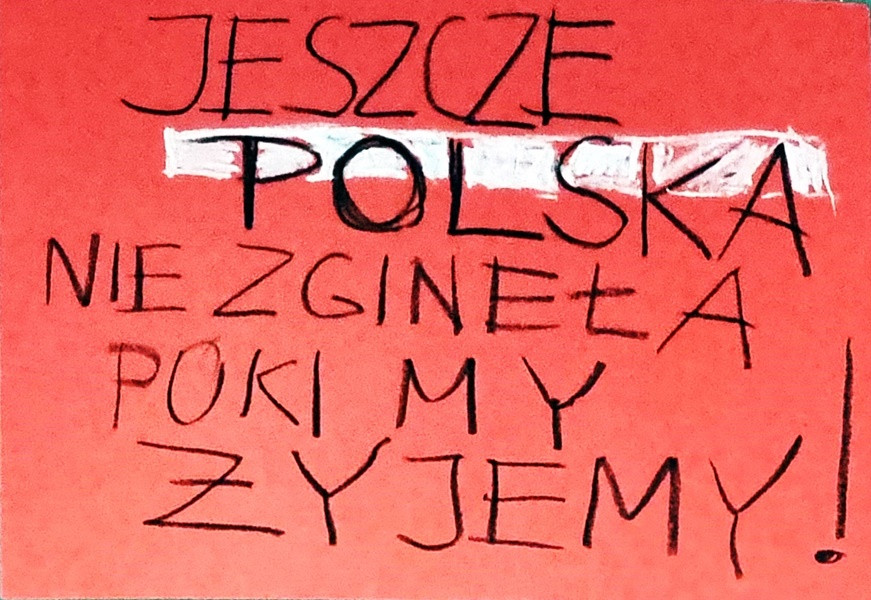 JESZCZE
POLSKA
NIE ZGINEŁA
POKI MY
ŻYJEMY!